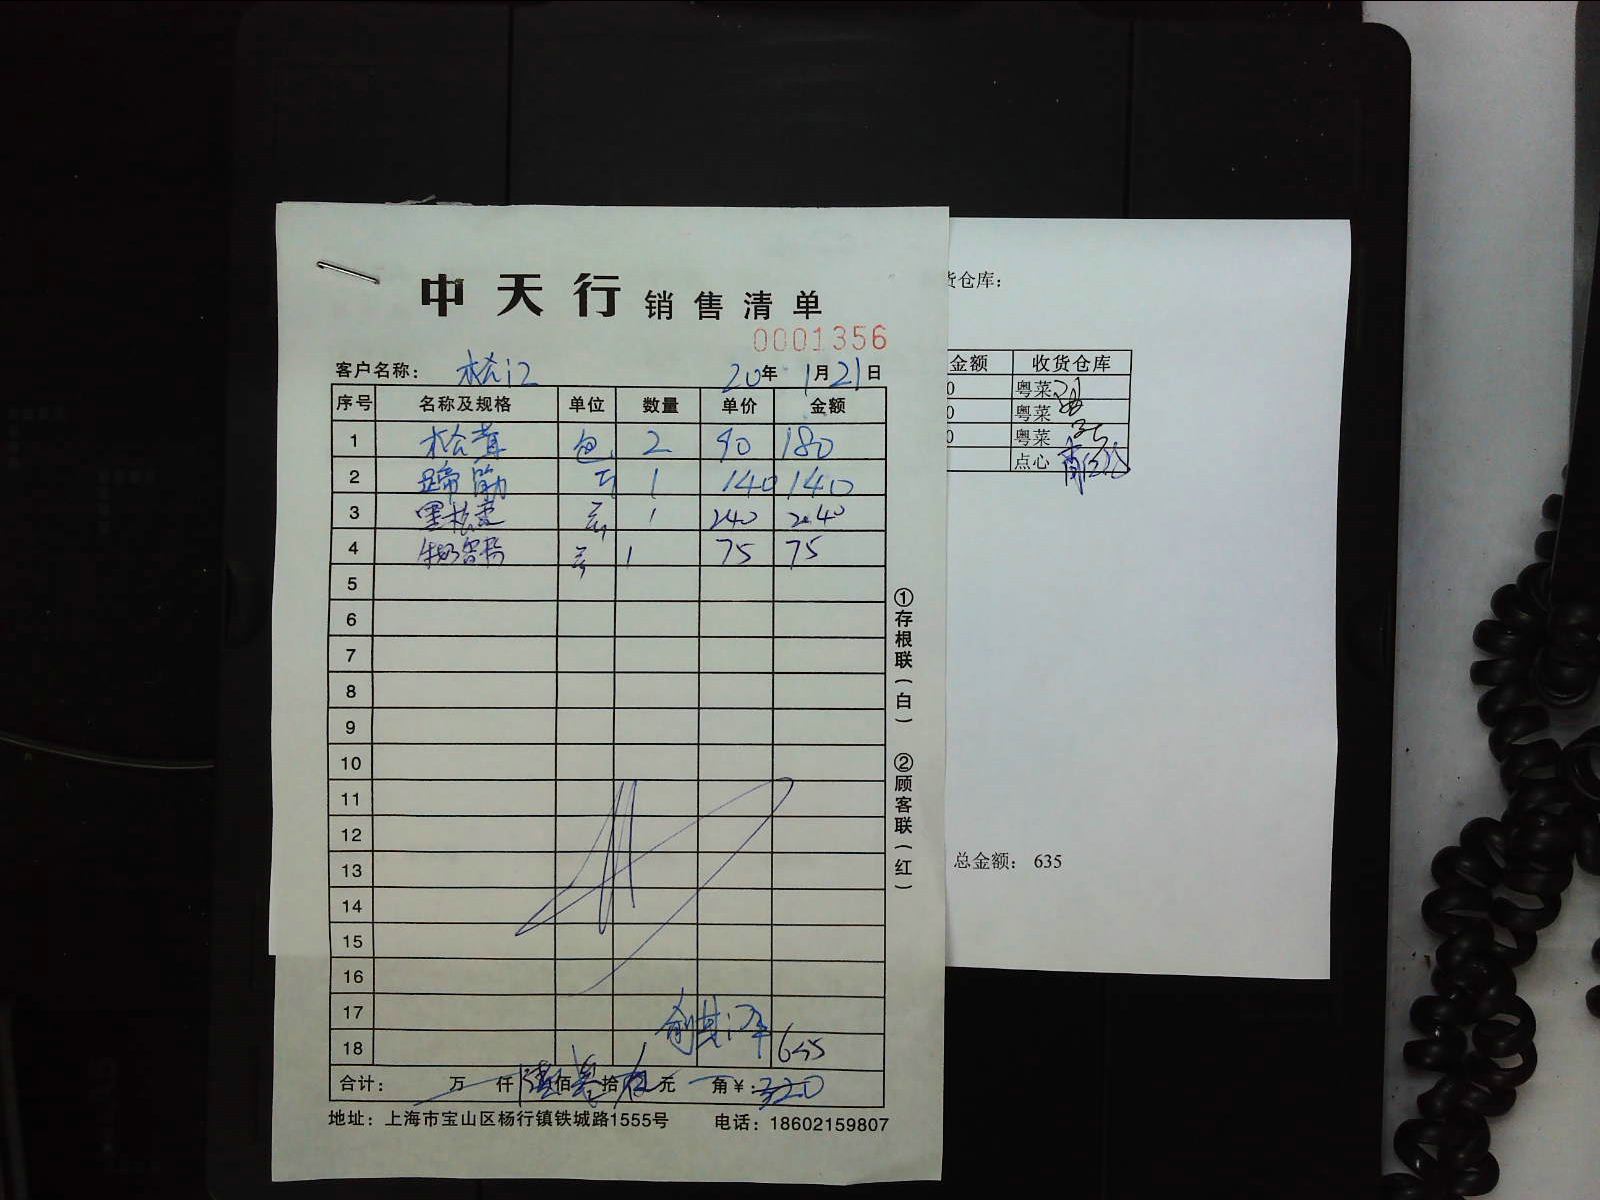 中天行 销售清单
0001356
客户名称： 松江 20年 1月21日
序号 名称及规格 单位 数量 单价 金额
1 松茸 包 2 90 180
2 蹄筋 1 140 140
3 1 240 240
4 1 75 75
5
6
7
8
9
10
11
12
13
14
15
16
17
18 635
合计： 万 仟 陆佰 叁拾 伍元 角￥：320
地址：上海市宝山区杨行镇铁城路1555号 电话：18602159807
①存根联（白） ②顾客联（红）
货仓库：
金额 收货仓库
0 粤菜
0 粤菜
0 粤菜
点心
总金额： 635